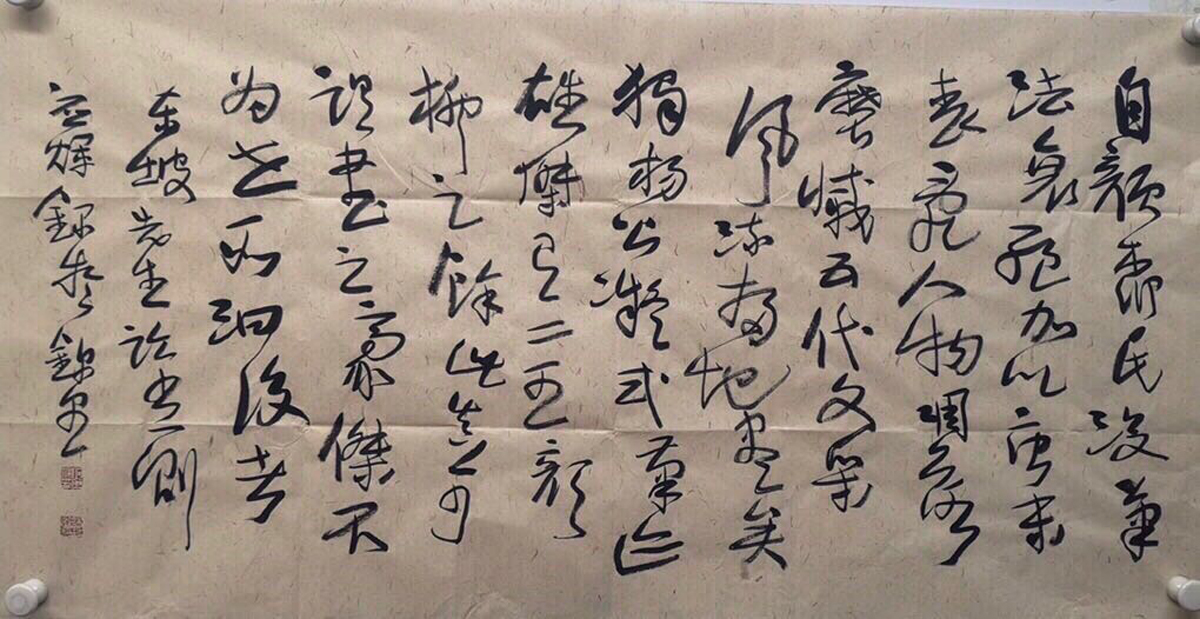 自顏柳氏没筆
法衰絕加以唐末
喪亂人物凋落
磨滅五代文采
風流掃地盡矣
獨楊公凝式筆迹
雄傑有二王顏
柳之餘此真可
謂書之豪傑不
為世所汩没者
東坡先生論書則
輝錄於錦